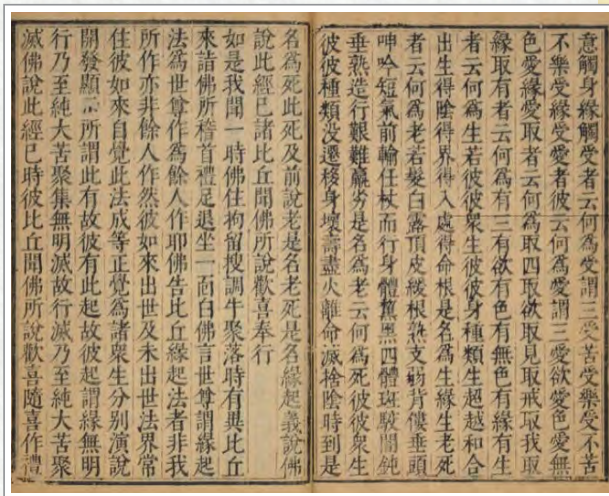 意觸身緣觸受者云何爲受謂三受苦受樂受不苦
不樂受緣受愛者彼云何爲愛謂三愛欲愛色愛無
色愛緣愛取者云何爲取四取欲取見取戒取我取
緣取有者云何爲有三有欲有色有無色有緣有生
者云何爲生若彼彼衆生彼彼身種類生超越和合
出生得陰得界得入處得命根是名爲生緣生老死
者云何爲老若髮白露頂皮緩根熟支弱背僂垂頭
呻吟短氣前輸任杖而行身體黧黑四體斑駮闇鈍
垂熟造行艱難羸劣是名爲老云何爲死彼彼衆生
彼彼種類没遷移身壞壽盡火離命滅捨陰時到是
名爲死此死及前說老是名老死是名緣起義說佛
說此經已諸比丘聞佛所說歡喜奉行
如是我聞一時佛住拘留搜調牛聚落時有異比丘
來詣佛所稽首禮足退坐一面白佛言世尊謂緣起
法爲世尊作爲餘人作耶佛告比丘緣起法者非我
所作亦非餘人作然彼如來出世及未出世法界常
住彼如來自覺此法成等正覺爲諸衆生分別演說
開發顯示所謂此有故彼有此起故彼起謂緣無明
行乃至純大苦聚集無明滅故行滅乃至純大苦聚
滅佛說此經已時彼比丘聞佛所說歡喜隨喜作禮